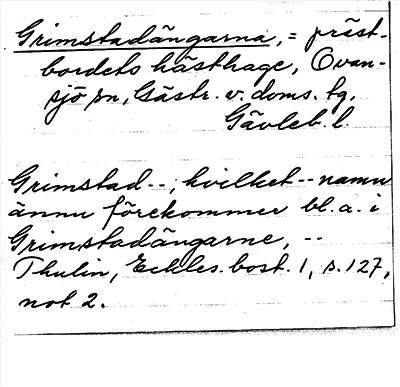 Grimstadängarna, = präst-
bordets hästhage, Ovan-
sjö sn, Gästr. v. doms. tg,
Gävleb. l.
Grimstad --, hvilket -- namn
ännu förekommer bl. a. i
Grimstadängarne, --
Thulin, Eckles. bost. 1, s. 127,
not 2.